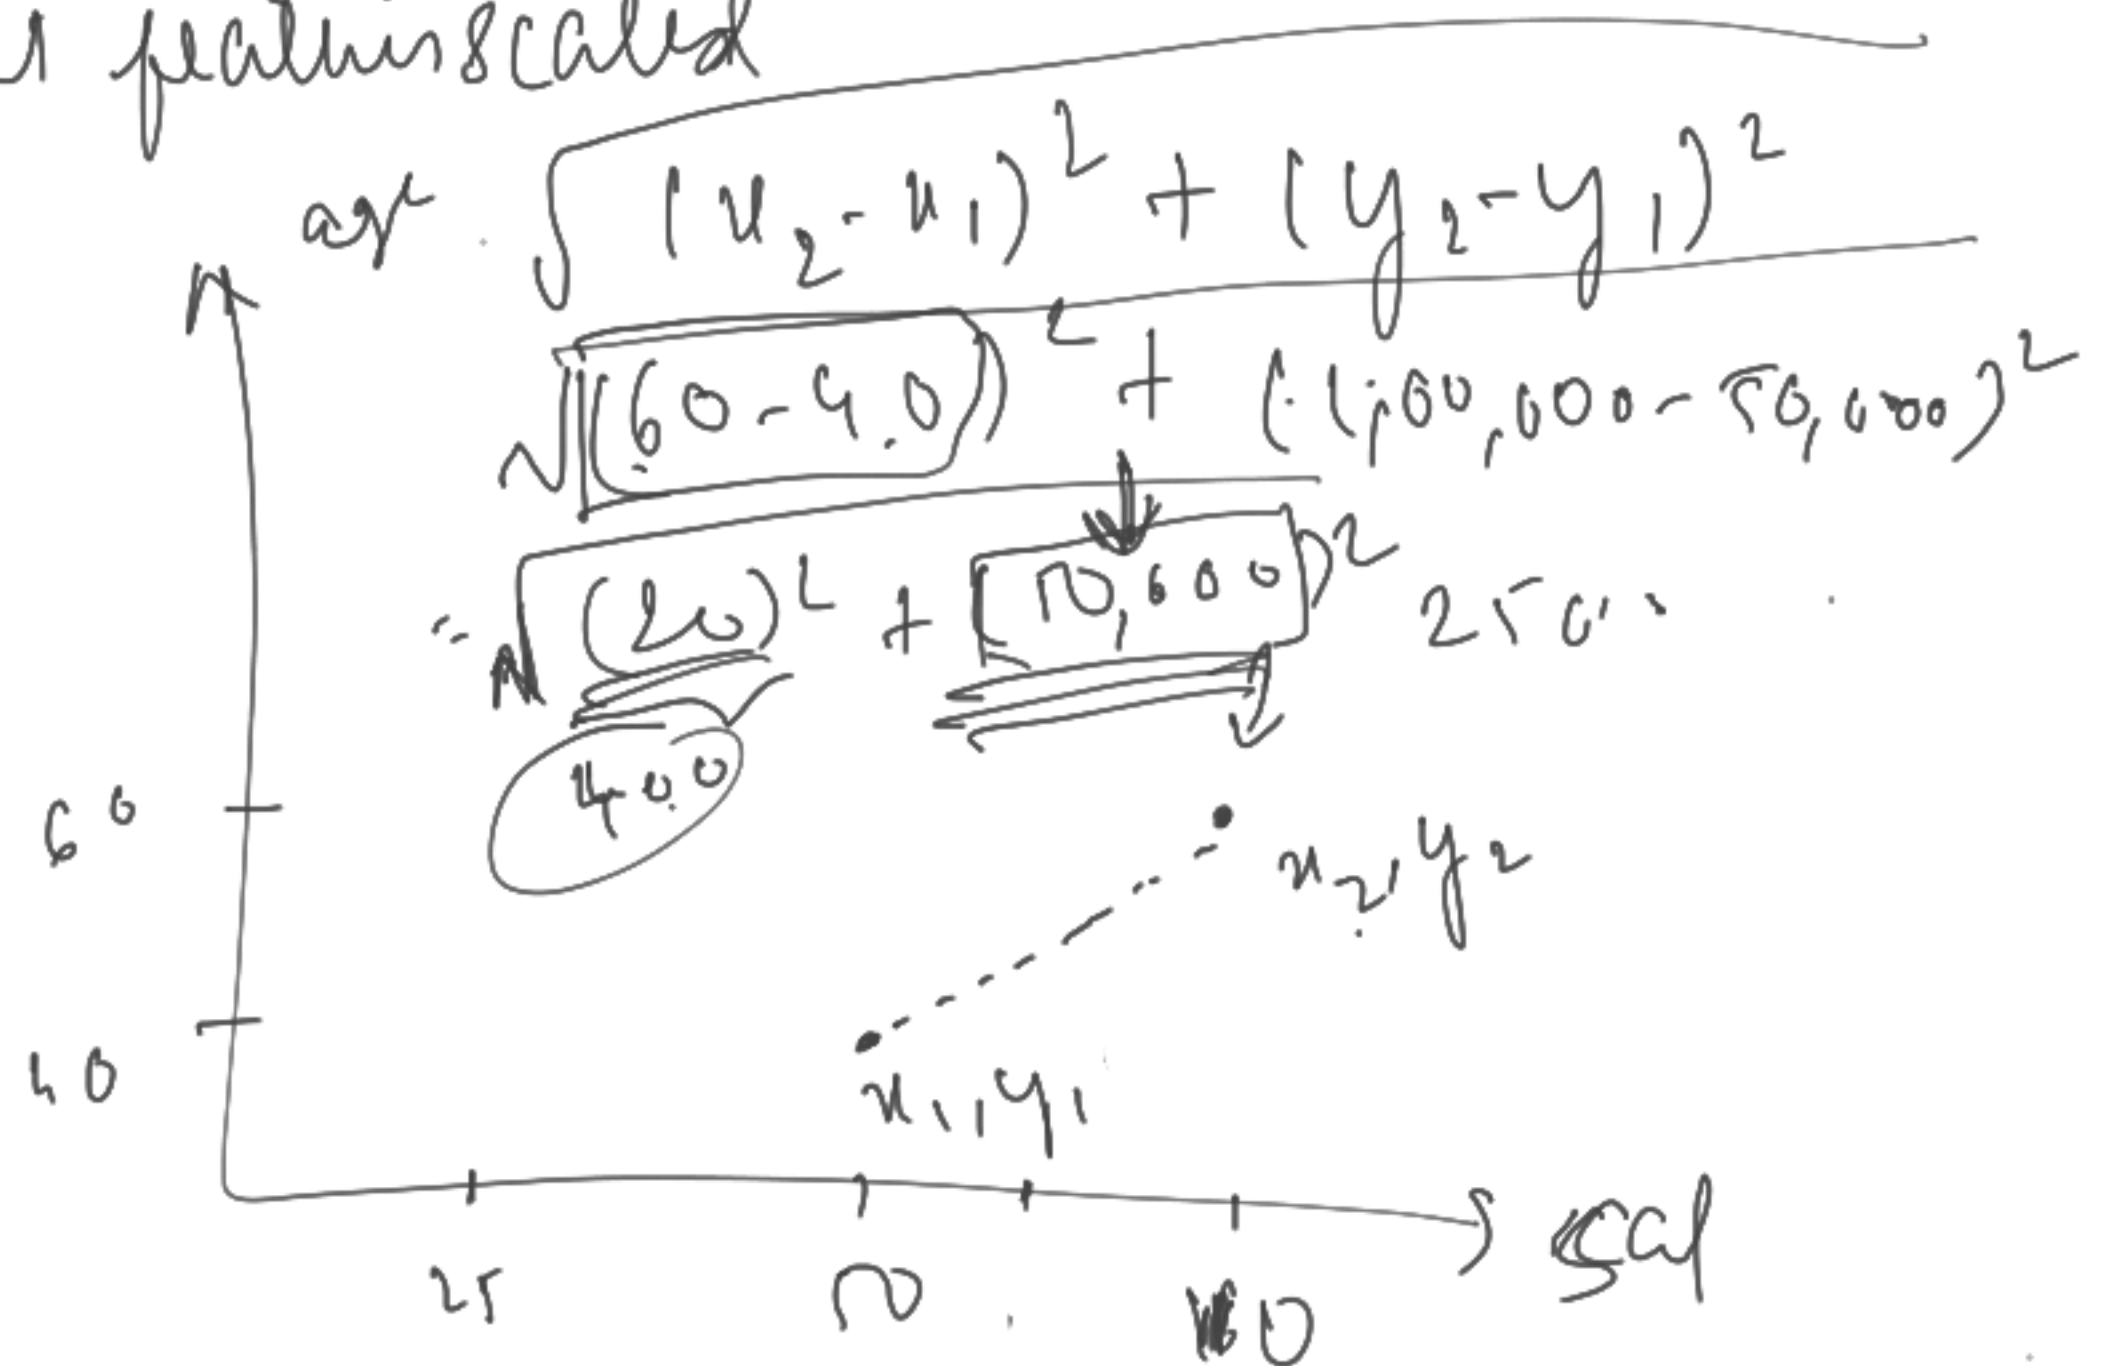 scaled
age √(x₂-x₁)² + (y₂-y₁)²
√(60-40)² + (1,00,000-50,000)²
= √(20)² + (50,000)² 250
400
60
x₂, y₂
40
x₁, y₁
25 50 100
sal